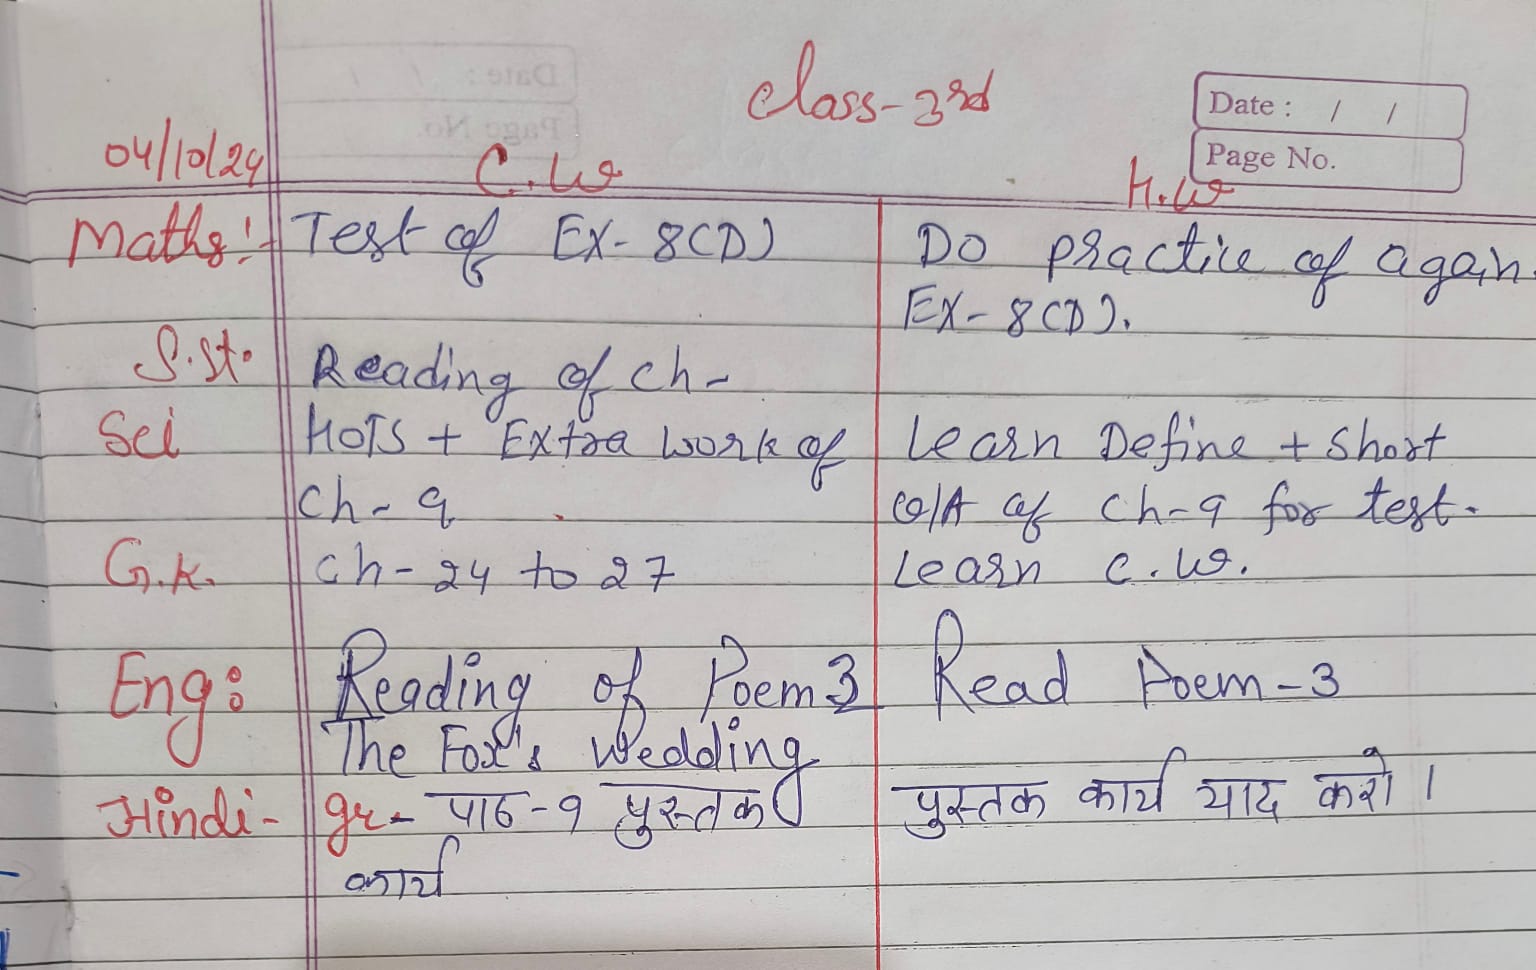 Class-3rd
Date : / /
Page No.
04/10/24 C.W H.W
Maths:- Test of EX-8(D) Do practice of again
EX-8(D).
S.st. Reading of ch-
Sci HOTS + Extra work of Learn Define + Short
Ch-9 Q/A of Ch-9 for test.
G.K. Ch-24 to 27 Learn C.W.
Eng: Reading of Poem 3 Read Poem-3
The Fox's Wedding
Hindi- gr- पाठ-9 पुस्तक पुस्तक कार्य याद करो।
कार्य